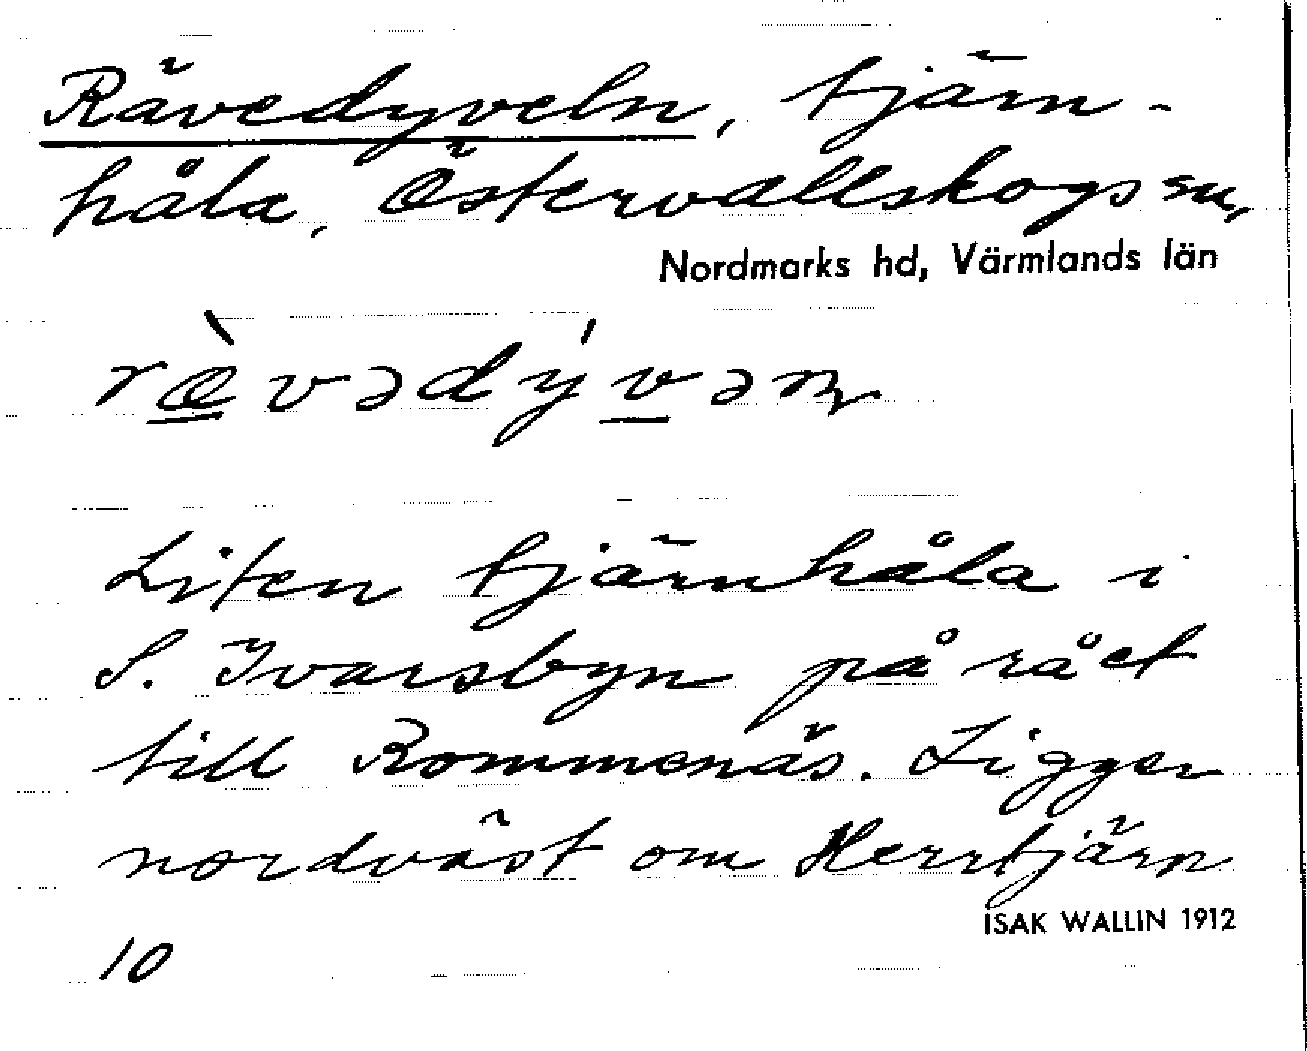 Rävedyveln, tjärn-
håla, Östervallskogs sn,
Nordmarks hd, Värmlands län
Liten tjärnhåla i
S. Ivarsbyn på rået
till Rommenäs. Ligger
nordväst om Herrtjärn
ISAK WALLIN 1912
10